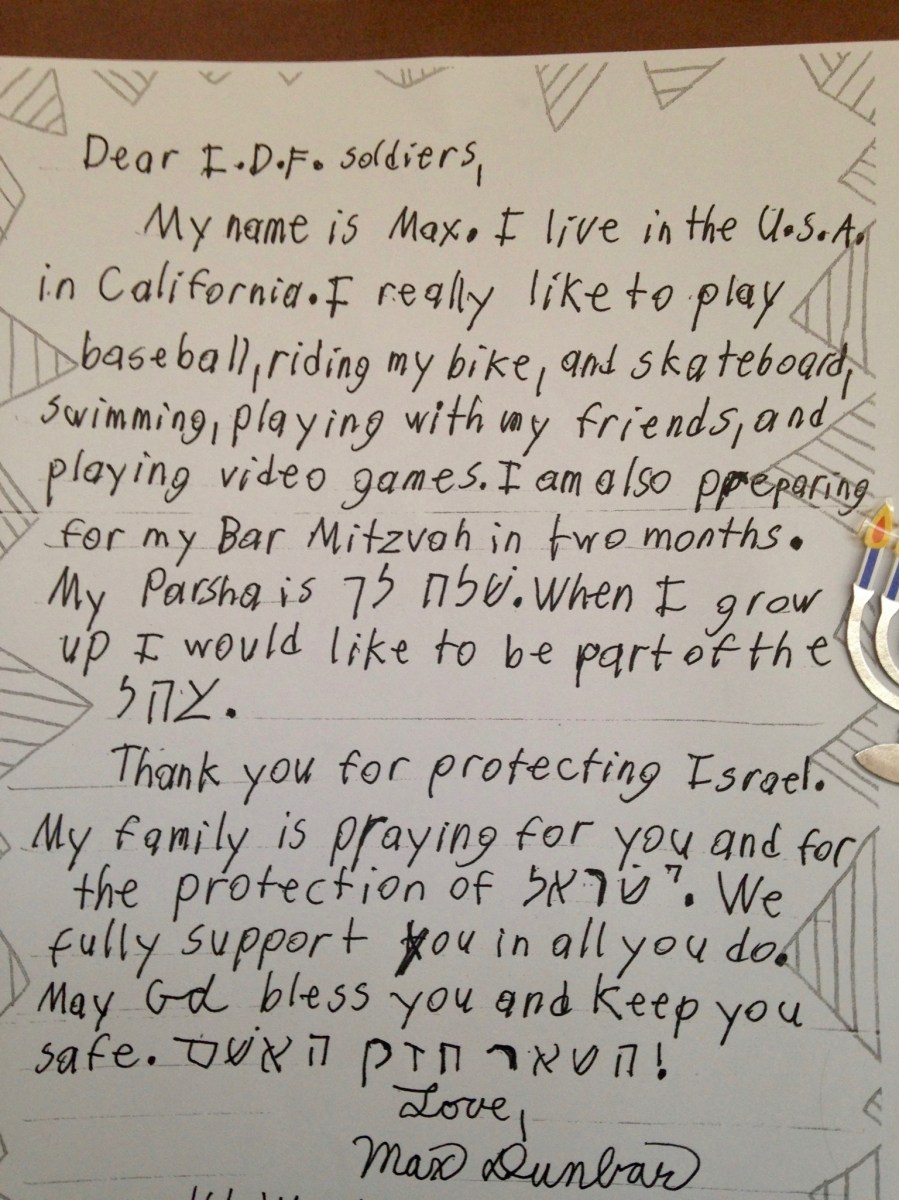 Dear I.D.F. soldiers,
My name is Max. I live in the U.S.A.
in California. I really like to play
baseball, riding my bike, and skateboard,
swimming, playing with my friends, and
playing video games. I am also preparing
for my Bar Mitzvah in two months.
My Parsha is שׁלח לך. When I grow
up I would like to be part of the
צהל.
Thank you for protecting Israel.
My family is praying for you and for
the protection of ישׂראל. We
fully support you in all you do.
May G-d bless you and keep you
safe. השאר חזק האשם!
Love,
Max Dunbar